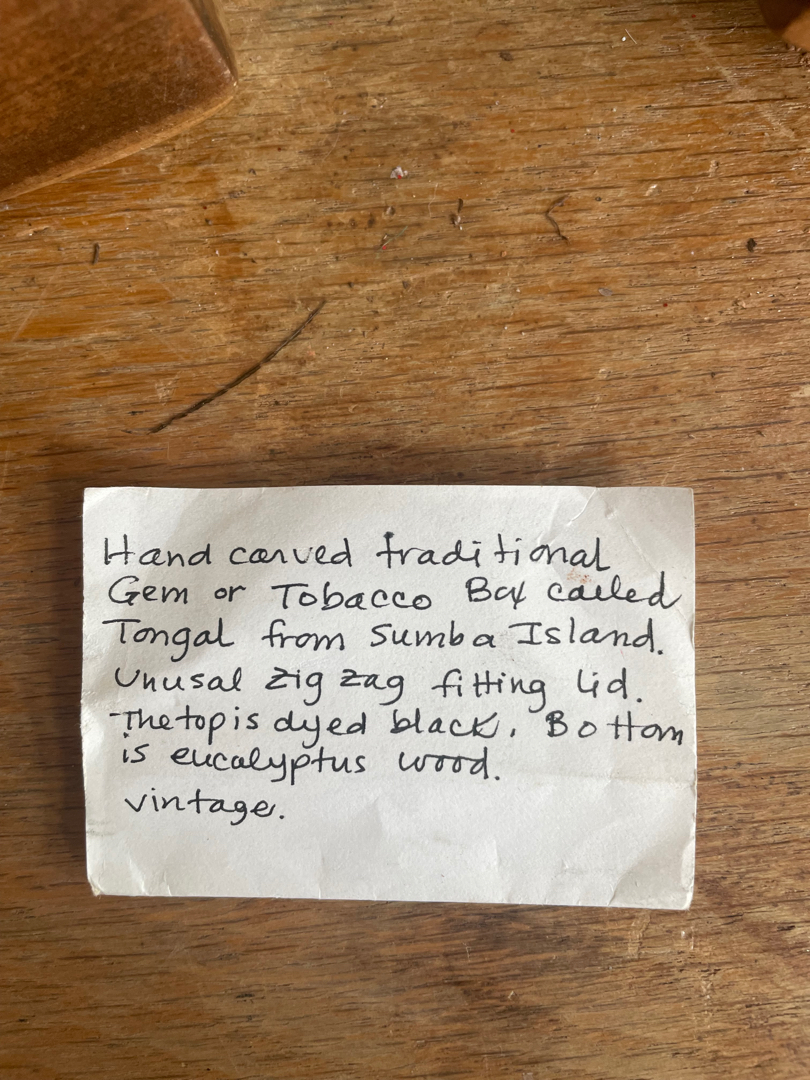 Hand carved traditional
Gem or Tobacco Box called
Tongal from Sumba Island.
Unusal zig zag fitting lid.
The top is dyed black. Bottom
is eucalyptus wood.
vintage.